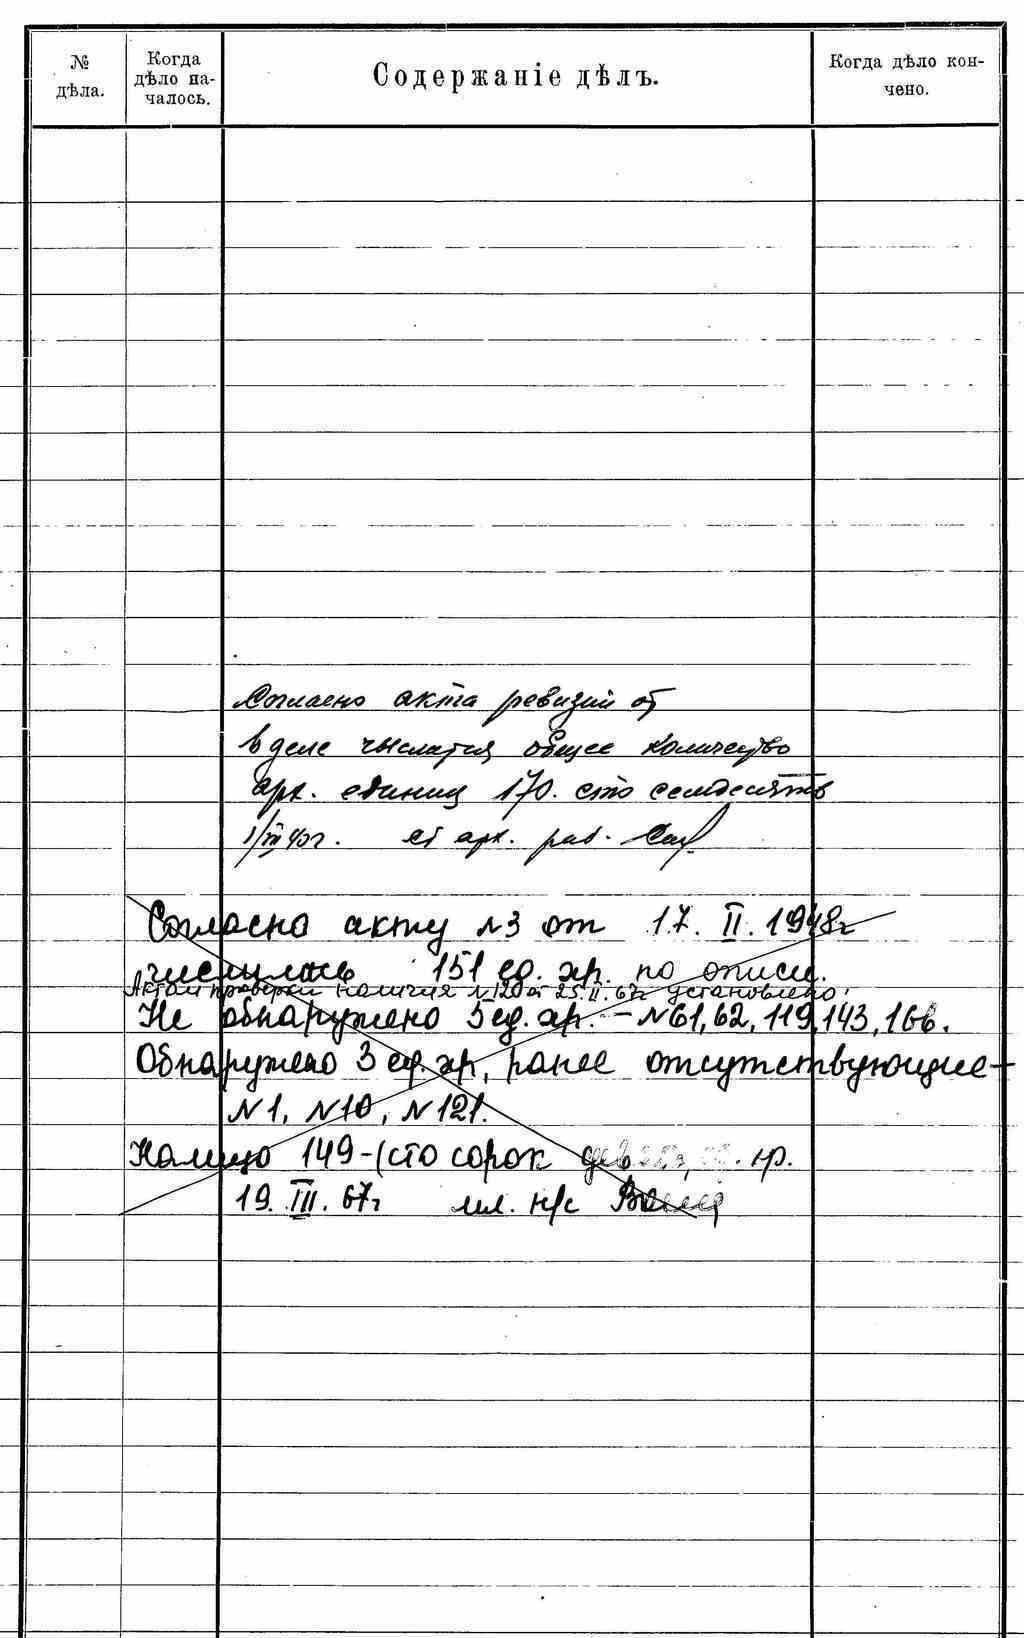 № дѣла.
Когда дѣло на-
чалось.
Содержаніе дѣлъ.
Когда дѣло кон-
чено.
Согласно акта ревизии от
в деле числятся общее количество
арх. единиц 170. сто семдесять
1/III 43г. ст арх. раб.
Согласно акту №3 от 17. II. 1948г
числилось 151 ед. хр. по описи.
Актом проверки наличия №120 от 25. II. 67г установлено:
Не обнаружено 5 ед. хр. - №61, 62, 119, 143, 166.
Обнаружено 3 ед. хр, ранее отсутствующие-
№1, №10, №121.
Налицо 149-(сто сорок девять, ед. хр.
19. III. 67г мл. н/с